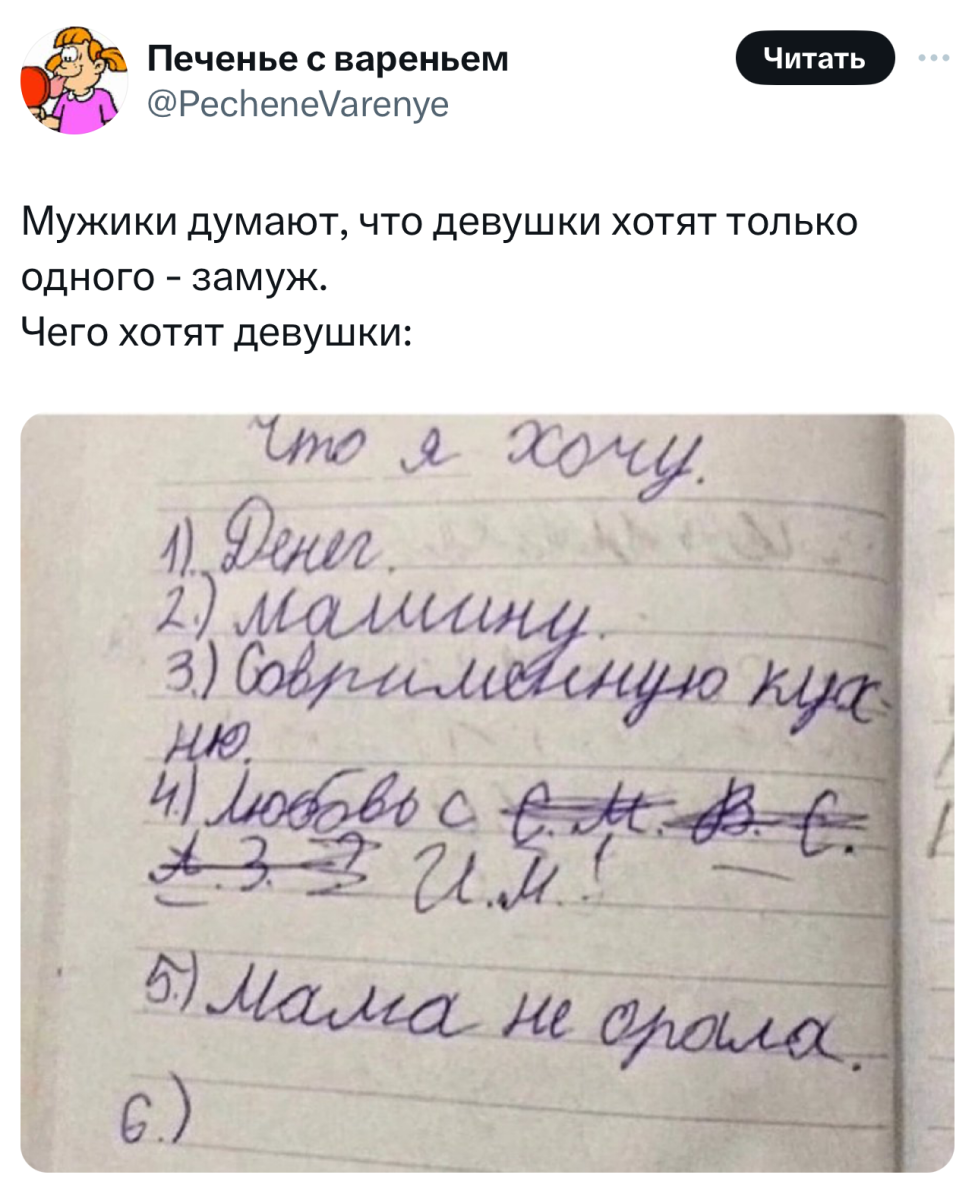 Печенье с вареньем
@PecheneVarenye
Читать
Мужики думают, что девушки хотят только
одного - замуж.
Чего хотят девушки:
Что я хочу.
1). Денег.
2.) Машину.
3.) Соврименную кух-
ню.
4.) Любовь с С.М. В. С.
А.З. И.М.!
5.) Мама не орала.
6.)